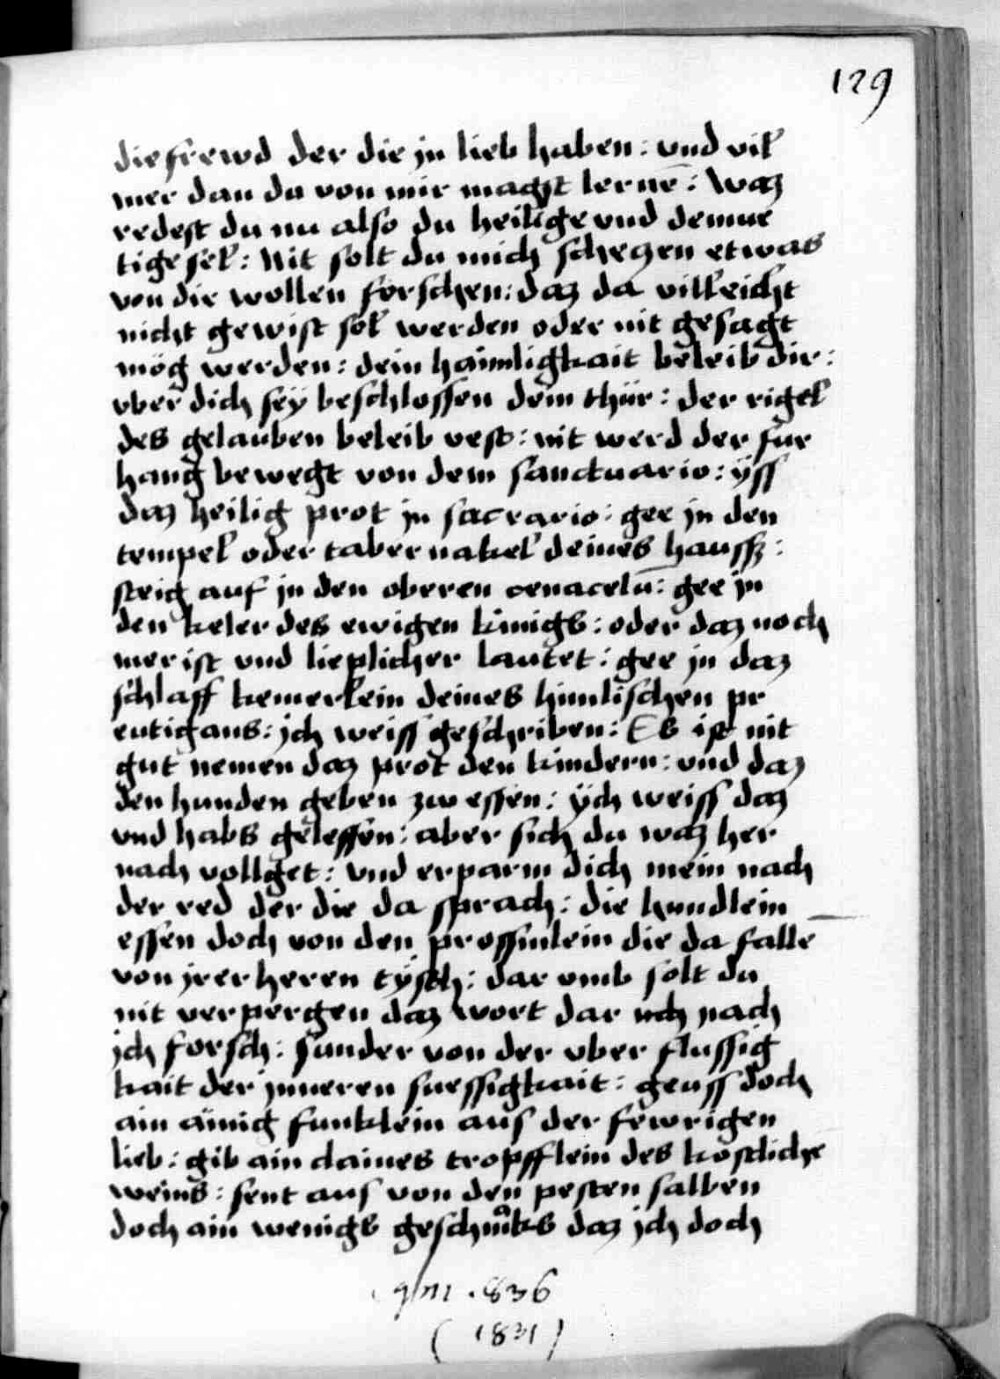 129
die frewd der die jn lieb haben : vnd vil
mer dan du von mir magst lernē : Waz
redest du nu also du heilige vnd demue
tige sel : Nit solt du mich scheczen etwas
von dir wollen forschen : daz da villeicht
nicht gewist sol werden oder nit gesagt
mög werden : dein haimligkait beleib dir :
vber dich sey beschlossen dein thür : der rigel
des gelauben beleib vest : nit werd der fur
hang bewegt von dem sanctuario : ÿss
daz heilig prot jn sacrario : gee jn den
tempel oder tabernakel deines hauss :
steig auf jn den oberen cenacelū : gee jn
den keler des ewigen kunigs : oder daz noch
mer ist vnd lieplicher lautet : gee jn daz
schlaff kemerlein deines himlischen pr
eutigans : jch weiss geschriben : Es ist nit
gut nemen daz prot den kindern : vnd daz
den hunden geben zw essen : ÿch weiss daz
vnd habs gelessen : aber sich du waz her
nach vollget : vnd erparm dich mein nach
der red der die da sprach : die hundlein
essen doch von den prossmlein die da falle
von jrer heren tÿsch : dar vmb solt du
nit verpergen daz wort dar nach
jch forsch : sunder von der vber flussig
kait der jnneren suessigkait : geuss doch
ain ainig funklein aus der fewrigen
lieb : gib ain claines tropfflein des kostliche
weins : sent aus von den pesten salben
doch ain wenigs geschmks daz jch doch
836
(1831)